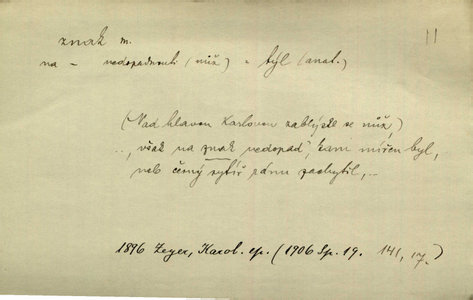 znak m.
11
na - nedopadnouti (nůž) = býl (anat.)
(Nad hlavou Karlovou zablýsklo se nůž,)
.., však na znak nedopad', kam mířen byl,
neb černý rytíř ránu zachytil, ..
1896 Zeyer, Karol. ep. (1906 Sp. 19. 141, 17.)